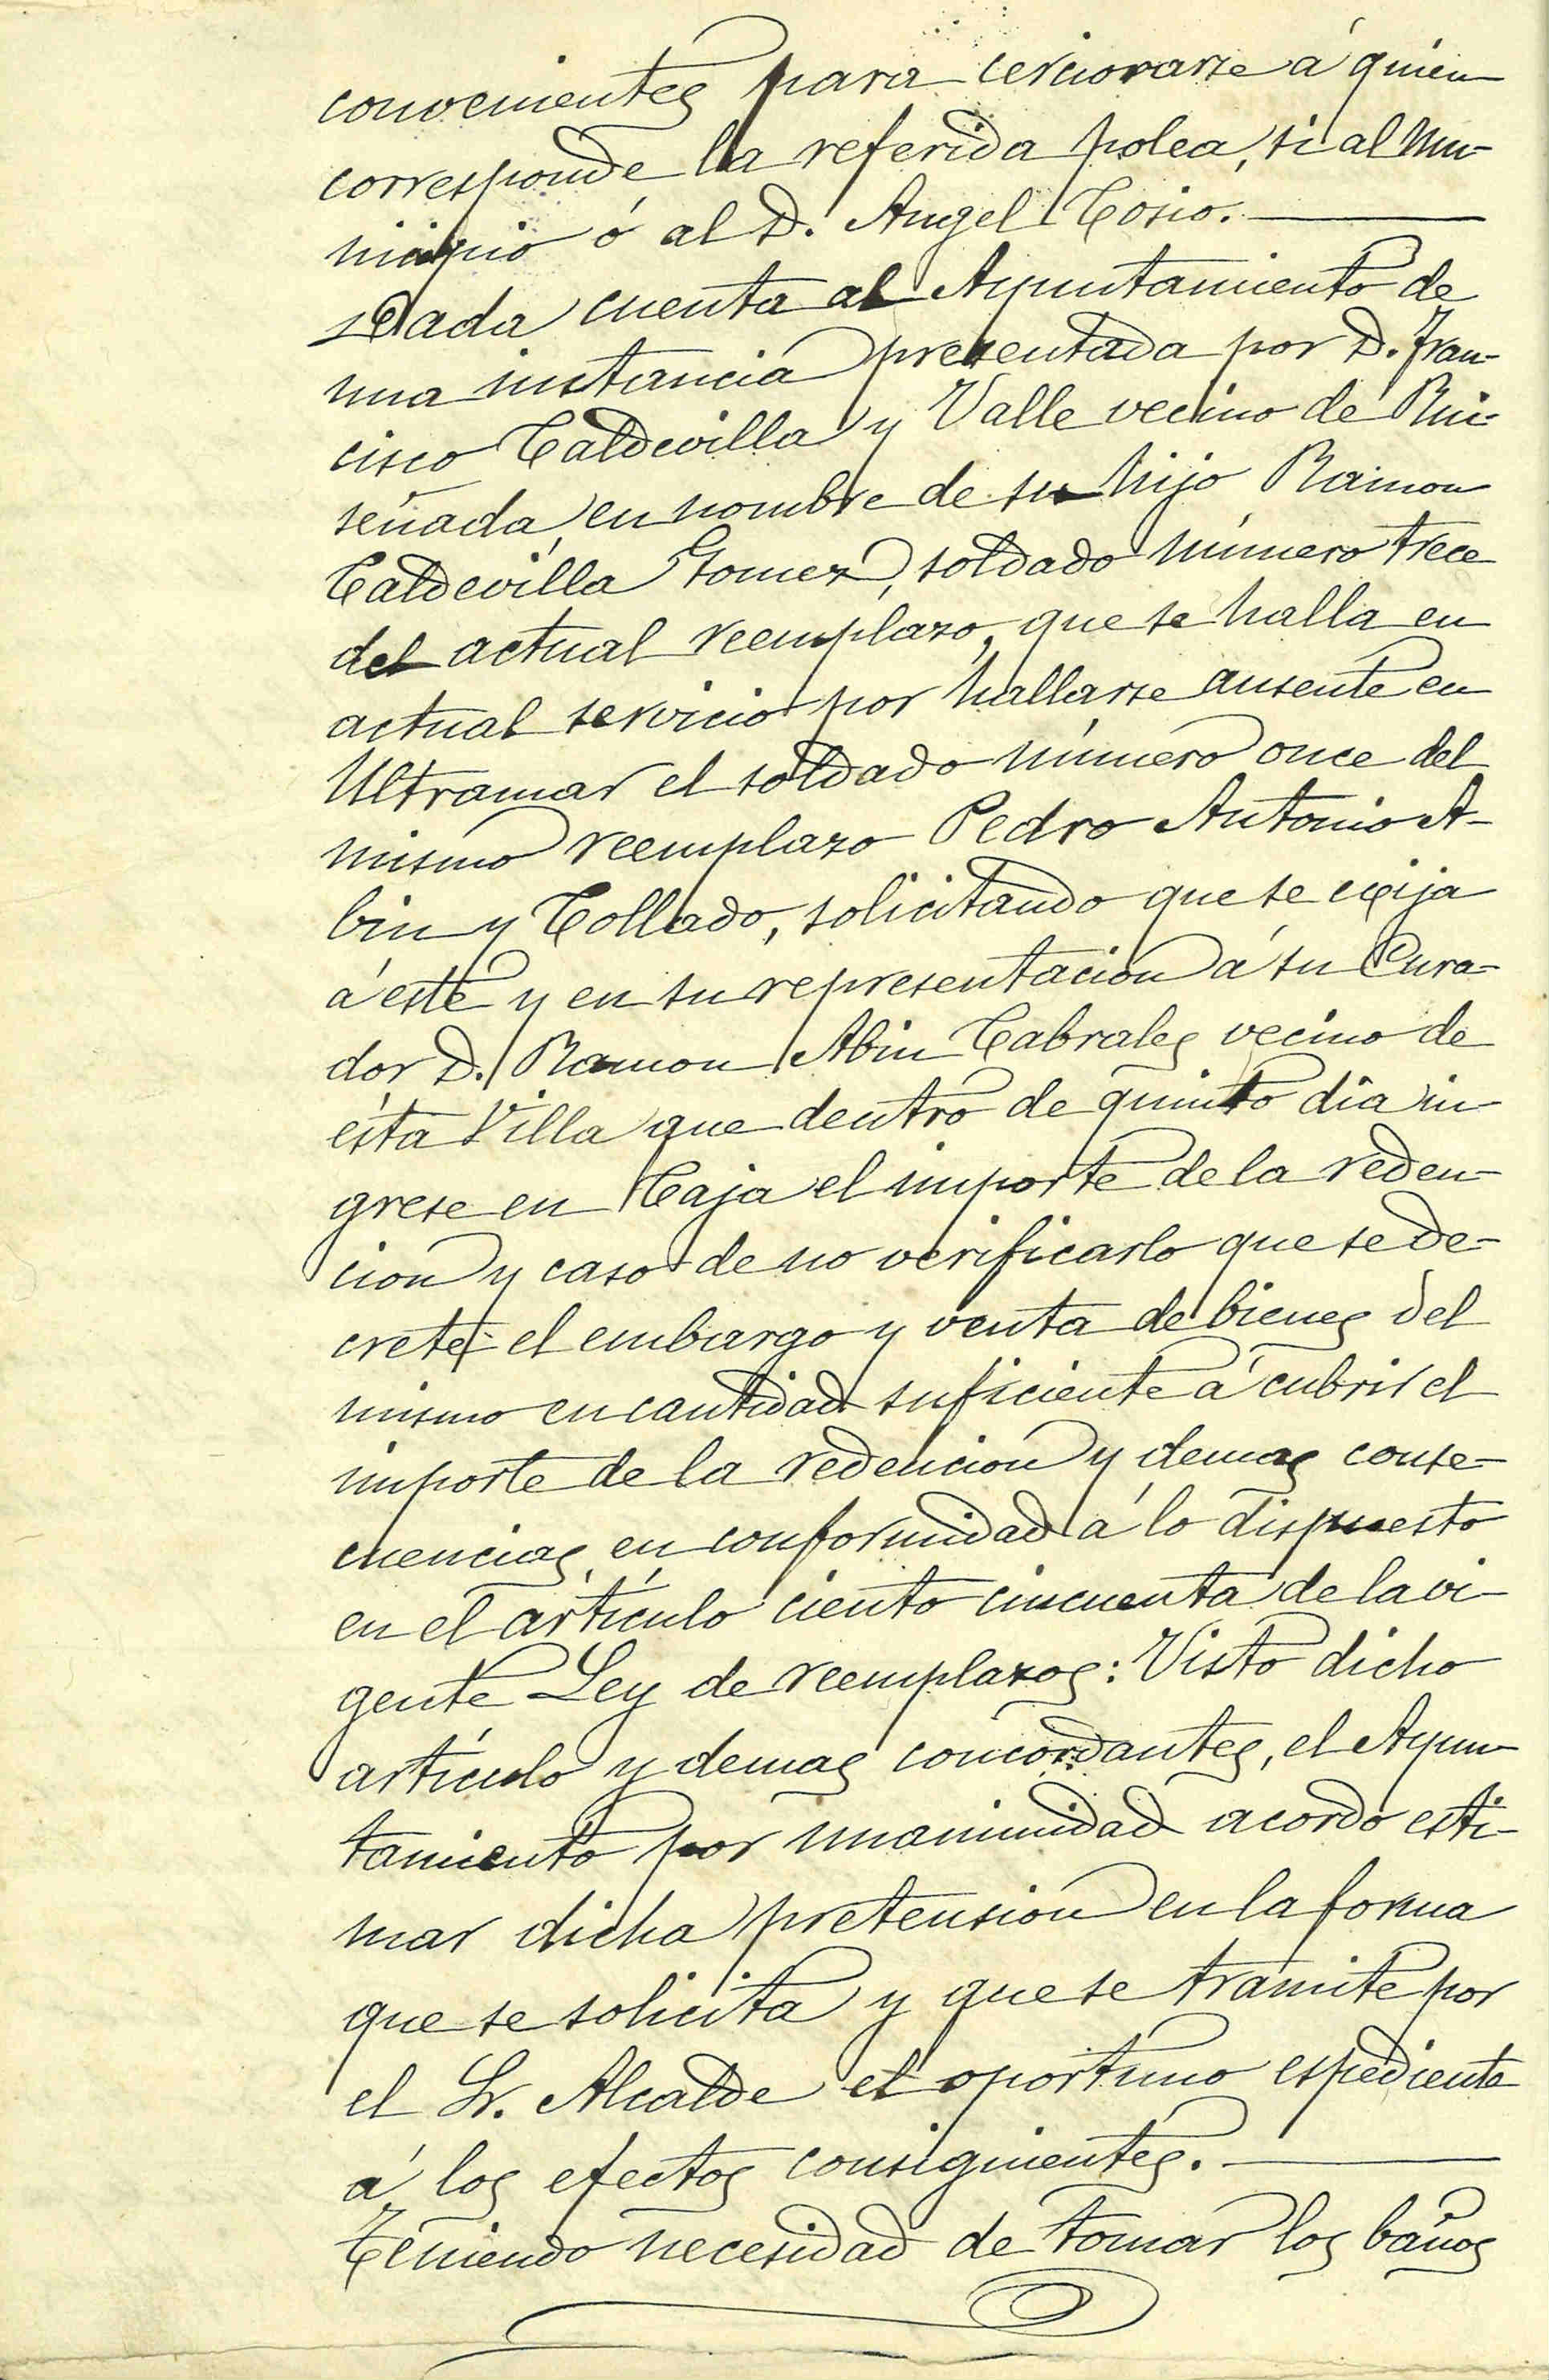 convenientes para cerciorarse á quien
corresponde la referida polea, si al Mu-
nicipio ó al D. Angel Cosio.
Dada cuenta al Ayuntamiento de
una instancia presentada por D. Fran-
cisco Caldevilla y Valle vecino de Rui-
señada, en nombre de su hijo Ramon
Caldevilla Gomez, soldado número trece
del actual reemplazo, que se halla en
actual servicio por hallarse ausente en
Ultramar el soldado número once del
mismo reemplazo Pedro Antonio A-
bin y Collado, solicitando que se exija
á este y en su representacion á su Cura-
dor D. Ramon Abin Cabrales vecino de
esta Villa que dentro de quinto dia in-
grese en Caja el importe de la reden-
cion y caso de no verificarlo que se de-
crete el embargo y venta de bienes del
mismo en cantidad suficiente á cubrir el
importe de la redencion y demas conse-
cuencias, en conformidad á lo dispuesto
en el artículo ciento cincuenta de la vi-
gente Ley de reemplazos: Visto dicho
artículo y demas concordantes, el Ayun-
tamiento por unanimidad acordó esti-
mar dicha pretension en la forma
que se solicita y que se tramite por
el Sr. Alcalde el oportuno espediente
á los efectos consiguientes.
Teniendo necesidad de tomar los baños